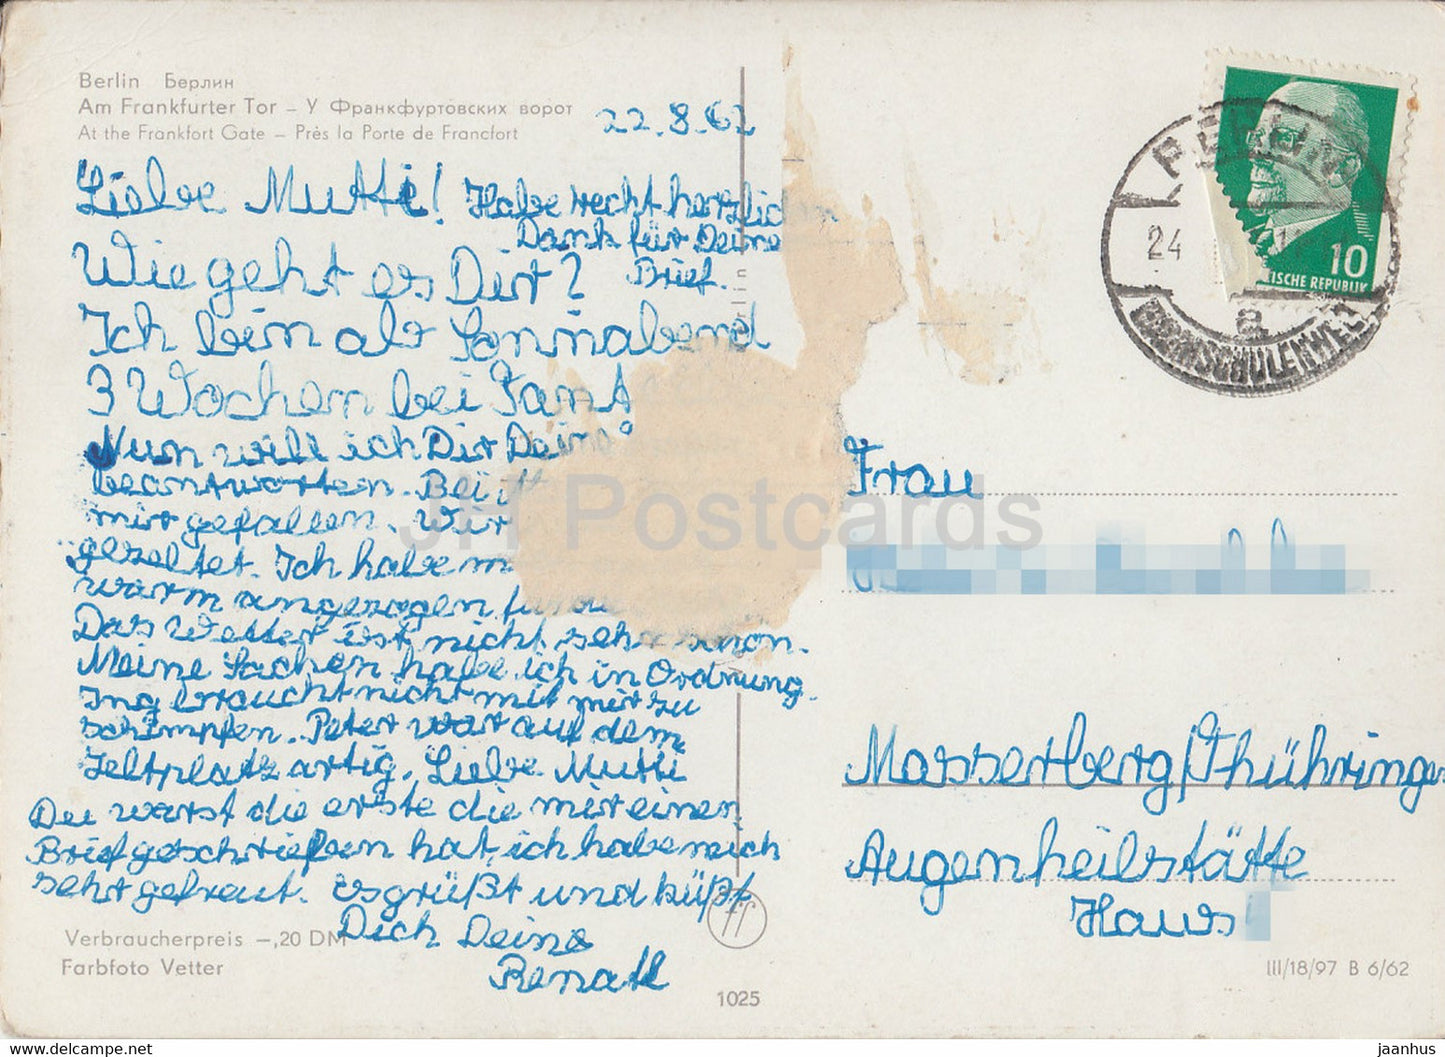 Berlin Берлин
Am Frankfurter Tor – У Франкфуртовских ворот
At the Frankfort Gate – Près la Porte de Francfort
22.8.62
Liebe Mutti! Habe recht herzlichen
Dank für Deine
Brief.
Wie geht es Dir?
Ich bin ab Sonnabend
3 Wochen bei Tant
Nun will ich Dir Deine
beantworten. Bei
mir gefallen. Wir
gezeltet. Ich habe
warm angezogen
Das Wetter ist nicht sehr schön.
Meine Sachen habe ich in Ordnung.
Ing braucht nicht mit mir zu
schimpfen. Peter war auf dem
Zeltplatz artig. Liebe Mutti
Du warst die erste die mir einen
Brief geschrieben hat, ich habe mich
sehr gefreut. Es grüßt und küßt
Dich Deine
Renate
Verbraucherpreis –,20 DM
Farbfoto Vetter
1025
BERLIN
24
a
BAUMSCHULENWEG
10
ISCHE REPUBLIK
Frau
Masserberg/Thühringen
Augenheilstätte
Haus
III/18/97 B 6/62
JH Postcards
www.jhpostcards.com
jaanhus